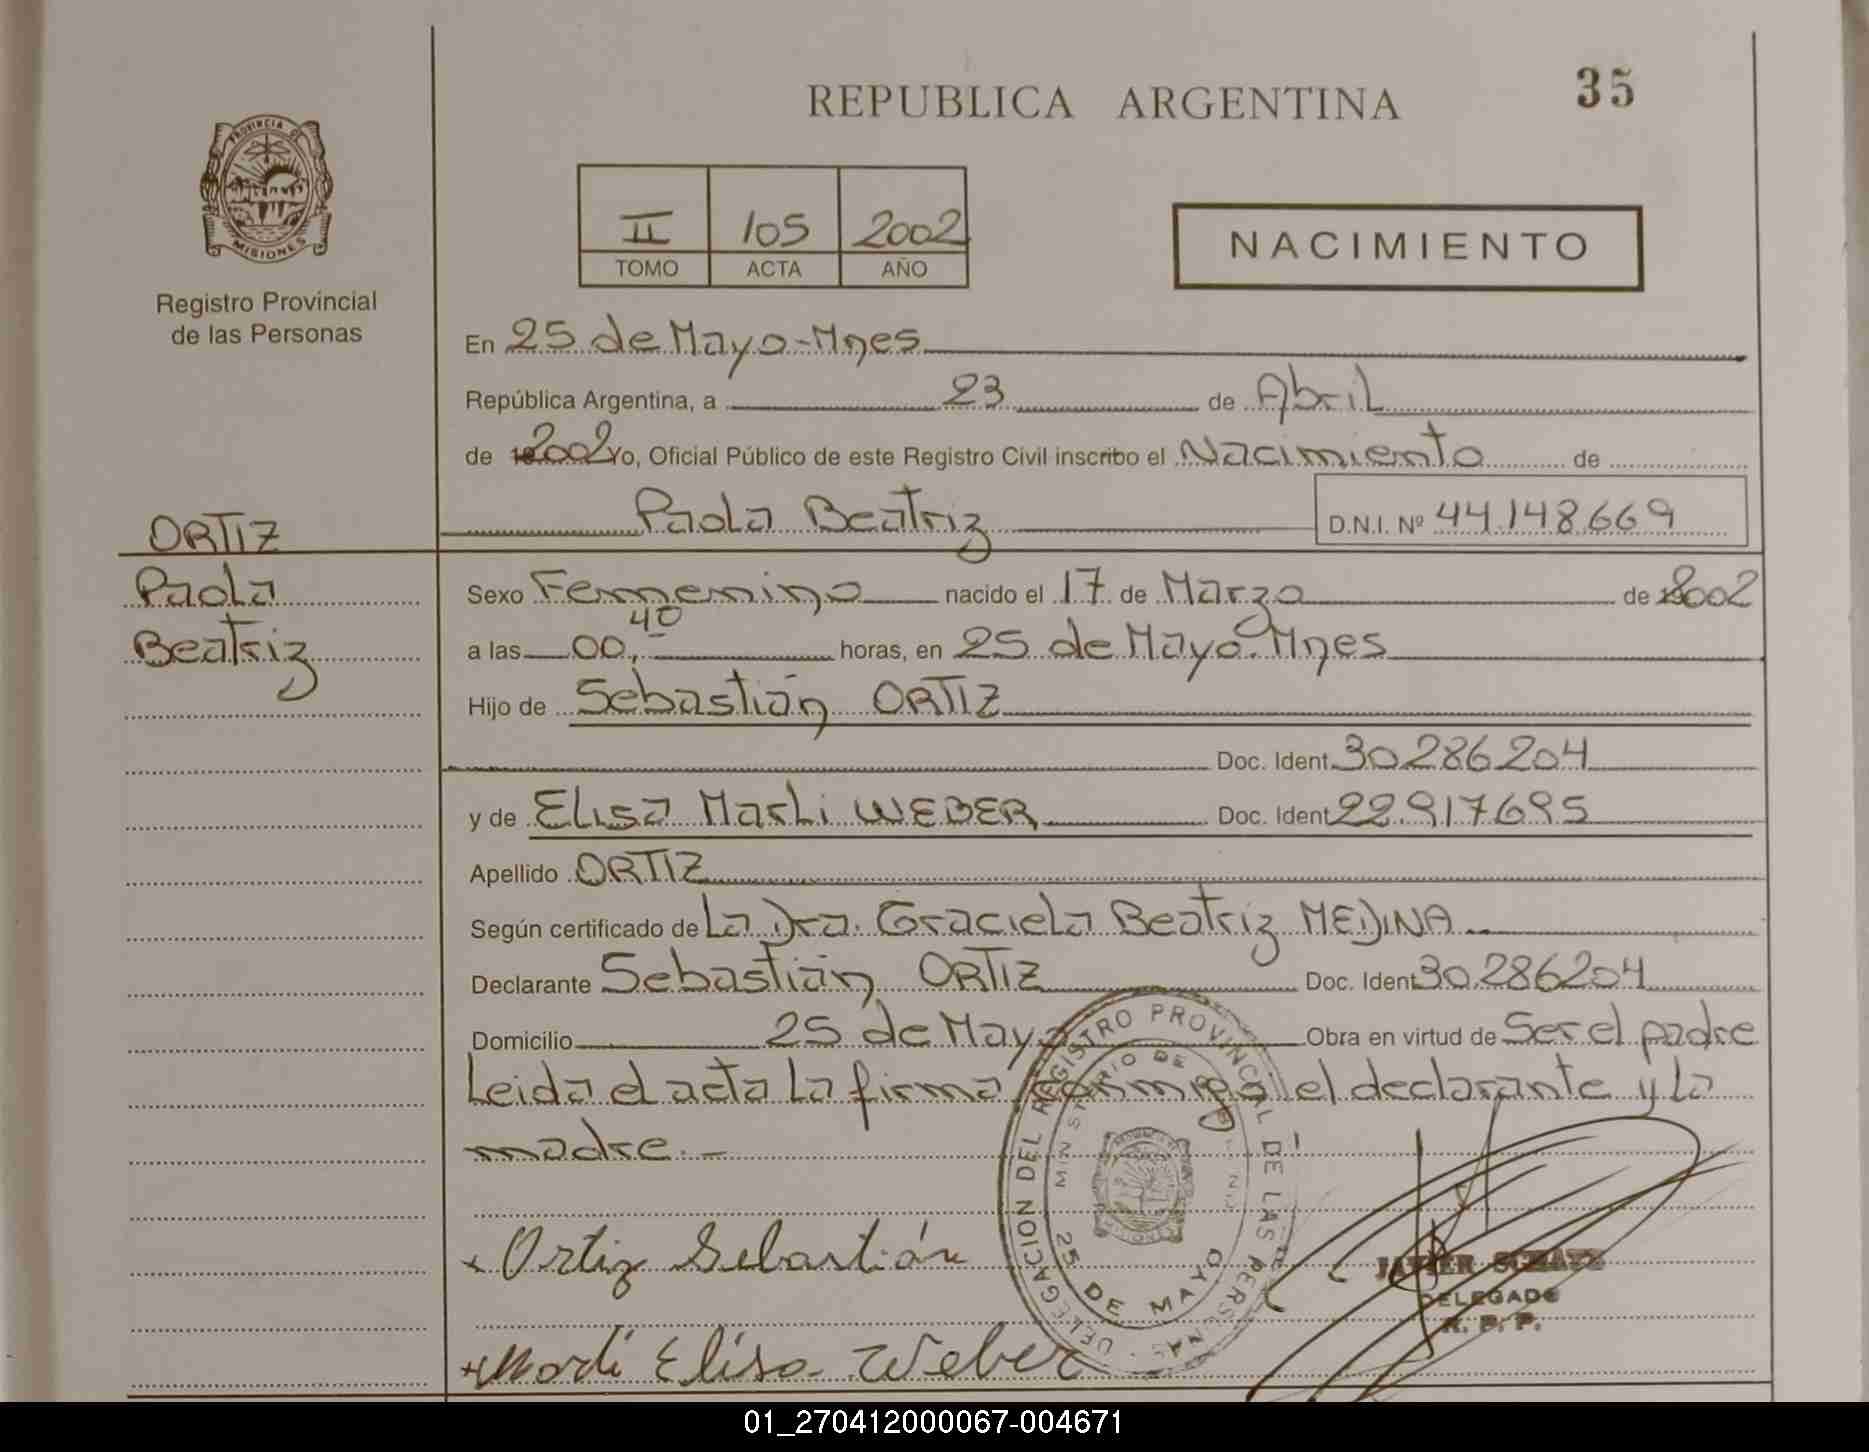 REPUBLICA ARGENTINA
35
PROVINCIA DE
MISIONES
Registro Provincial
de las Personas
II 105 2002
TOMO ACTA AÑO
NACIMIENTO
En 25 de Mayo-Mnes
República Argentina, a 23 de Abril
de 2002 Yo, Oficial Público de este Registro Civil inscribo el Nacimiento de
Paola Beatriz D.N.I. Nº 44.148.669
ORTIZ
Paola
Beatriz
Sexo Femenino nacido el 17 de Marzo de 2002
a las 00,40 horas, en 25 de Mayo-Mnes
Hijo de Sebastián ORTIZ
Doc. Ident. 30.286204
y de Elisa Marli WEBER Doc. Ident 22.917695
Apellido ORTIZ
Según certificado de La Dra. Graciela Beatriz MEDINA
Declarante Sebastián ORTIZ Doc. Ident 30.286204
Domicilio 25 de Mayo Obra en virtud de Ser el padre
Leida el acta La firma conmigo el declarante y La
madre.-
DELEGACION DEL REGISTRO PROVINCIAL DE LAS PERSONAS
MINISTERIO DE
25 DE MAYO
Ortiz Sebastián
JAVIER
DELEGADO
R. P. P.
Marli Elisa Weber
01_270412000067-004671